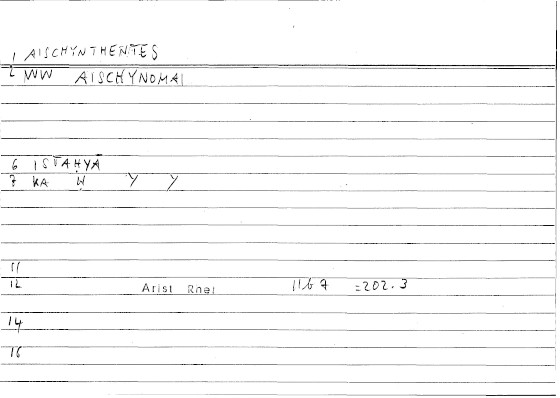 1 AISCHYNTHENTES
2 WW AISCHYNOMAI
6 ISTAḤYĀ
7 KA Ẉ Y Y
11
12 Arist Rhet 1167 =202.3
14
16